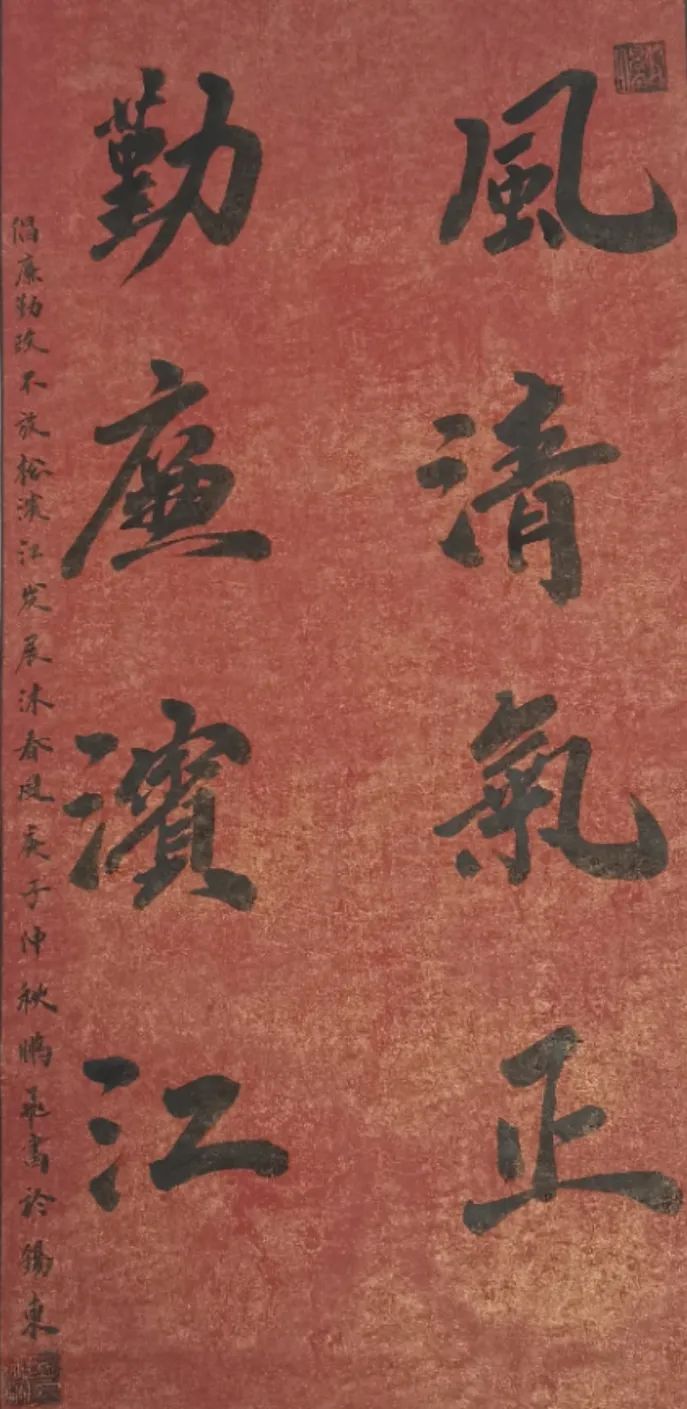 風清氣正
勤廉濱江
倡廉勤政不放松濱江发展沐春风庚子仲秋鹏飞書於锡東